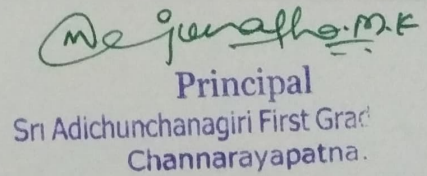 Principal
Sri Adichunchanagiri First Grad
Channarayapatna.